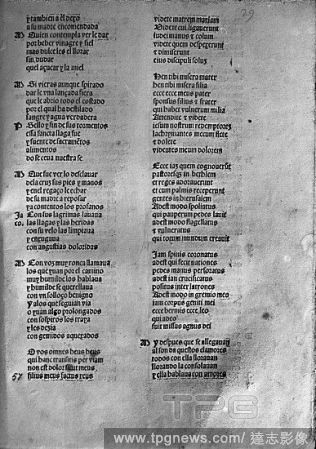 y tambien
a su madre encomendada
Quien contempla ver le dar
por beber vinagre y fiel
mas dulce es el llorar
sin dudar
quel açucar y la miel
Si vieras aunque spirado
dar le una lançada fiera
que le abrio todo el costado
por el qual ha destilado
sangre y agua verdadera
Sello fin de sus tormentos
esta sancta llaga fue
y fuente de sacramẽtos
alimentos
do se ceua nuestra fe
Que fue ver lo desclauar
de la cruz sus pies y manos
y enel regaço lleuar
de su madre a reposar
y contemos los profanos
Con sus lagrimas lauaua
las llagas y las heridas
con su velo las limpiaua
y enxugaua
con angustias doloridas
Con voz muy ronca llamaua
los que yuan por el camino
muy humilde los hablaua
y humilde se querellaua
con vn solloço benigno
Y alos que seguian via
o yuan algo prolongados
con sospiros los traya
y les dezia
con gemidos aquexados
O vos omnes deus deus
qui hanc transitis per viam
non est dolor sicut meus
filius meus factus reus
57
videte matrem
Videte cui ligauerunt
sudei manus et colum
videte quem despexerunt
et dimiserunt
eius discipuli solum
Heu tibi misera mater
heu tibi misera filia
ecce ecce meus pater
sponsus filius et frater
qui habet vulnerum milia
Attendite et videte
iesum nostrum redemptorem
lachrymantes mecum flete
et dolete
videntes meum dolorem
Ecce iaz quem cognouerũt
pastoresq; in bethleem
et reges adorauerunt
et cum palmis receperunt
gentes in hierusalem
Adest modo spoliatus
qui pauperum pedes lauit
adest modo flagellatus
et vulneratus
qui totum mundum creauit
Iam spinis coronatus
adest qui fecit nationes
pedes manus perforatus
adest iam crucificatus
positus inter latrones
Adest modo in gremio meo
iam corpus geniti mei
ecce hermis ecce leo
qui a deo
fuit missus agnus dei
Y despues que se allegauan
al son de questos clamores
todos con ella llorauan
llorando la consolauan
y ella hablaua con amores
29
TPG
www.tpgnews.com/ 達志影像